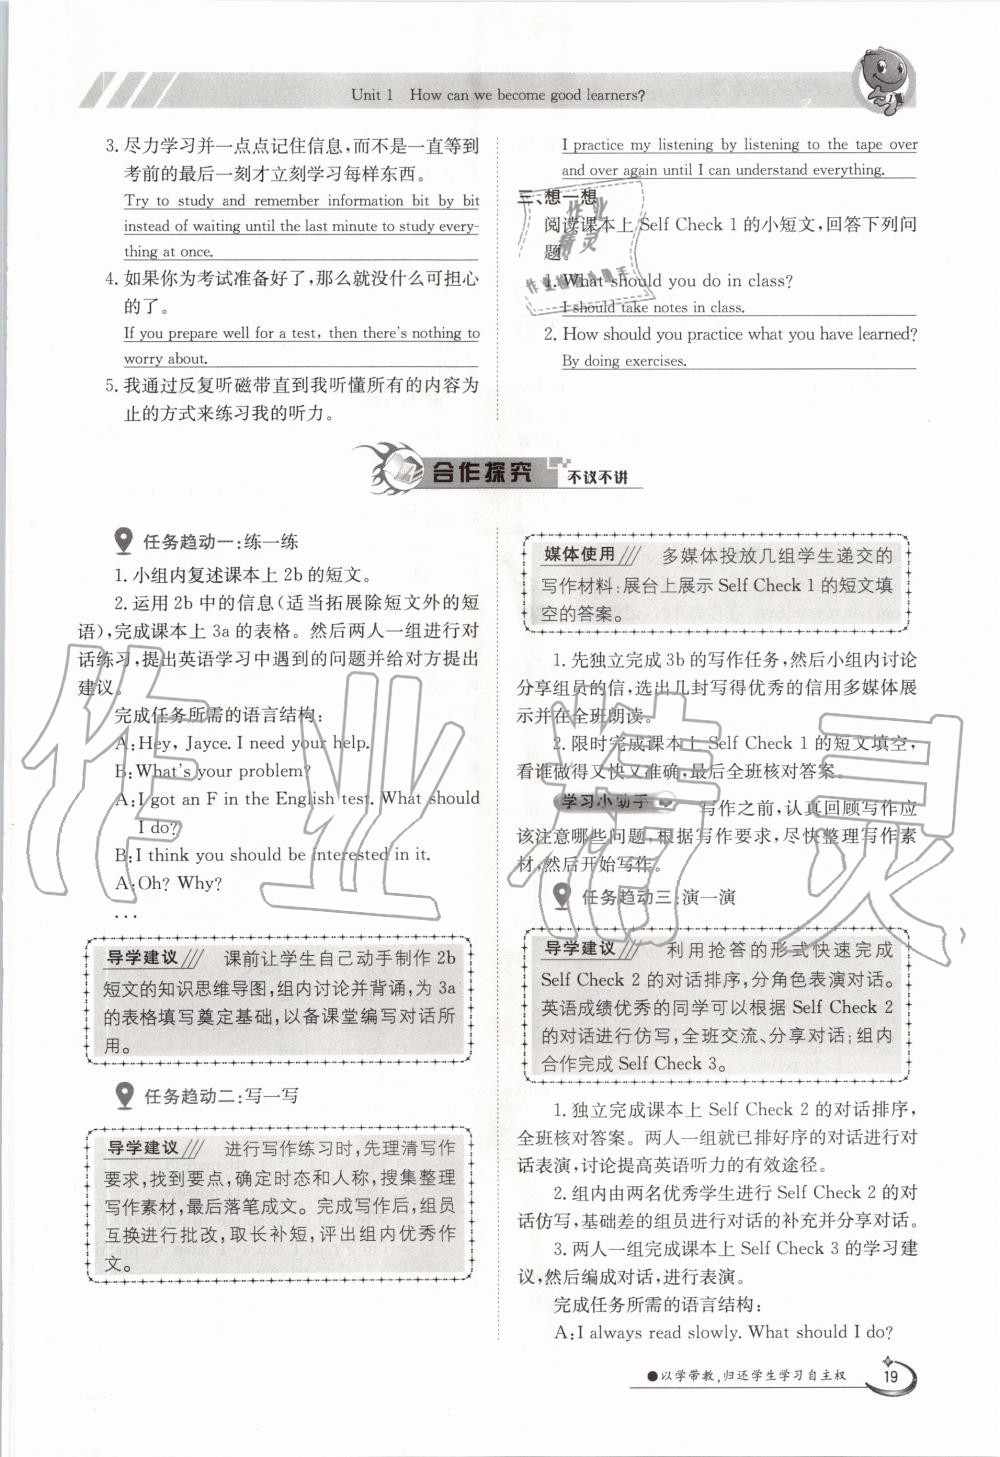 Unit 1 How can we become good learners?
3. 尽力学习并一点点记住信息，而不是一直等到
考前的最后一刻才立刻学习每样东西。
Try to study and remember information bit by bit
instead of waiting until the last minute to study every-
thing at once.
4. 如果你为考试准备好了，那么就没什么可担心
的了。
If you prepare well for a test, then there's nothing to
worry about.
5. 我通过反复听磁带直到我听懂所有的内容为
止的方式来练习我的听力。
I practice my listening by listening to the tape over
and over again until I can understand everything.
三、想一想
阅读课本上 Self Check 1 的小短文，回答下列问
题。
1. What should you do in class?
I should take notes in class.
2. How should you practice what you have learned?
By doing exercises.
合作探究 不议不讲
任务趋动一：练一练
1. 小组内复述课本上 2b 的短文。
2. 运用 2b 中的信息（适当拓展除短文外的短
语），完成课本上 3a 的表格。然后两人一组进行对
话练习，提出英语学习中遇到的问题并给对方提出
建议。
完成任务所需的语言结构：
A: Hey, Jayce. I need your help.
B: What's your problem?
A: I got an F in the English test. What should
I do?
B: I think you should be interested in it.
A: Oh? Why?
...
导学建议 课前让学生自己动手制作 2b
短文的知识思维导图，组内讨论并背诵，为 3a
的表格填写奠定基础，以备课堂编写对话所
用。
任务趋动二：写一写
导学建议 进行写作练习时，先理清写作
要求，找到要点，确定时态和人称，搜集整理
写作素材，最后落笔成文。完成写作后，组员
互换进行批改，取长补短，评出组内优秀作
文。
媒体使用 多媒体投放几组学生递交的
写作材料；展台上展示 Self Check 1 的短文填
空的答案。
1. 先独立完成 3b 的写作任务，然后小组内讨论
分享组员的信，选出几封写得优秀的信用多媒体展
示并在全班朗读。
2. 限时完成课本上 Self Check 1 的短文填空，
看谁做得又快又准确，最后全班核对答案。
学习小助手 写作之前，认真回顾写作应
该注意哪些问题，根据写作要求，尽快整理写作素
材，然后开始写作。
任务趋动三：演一演
导学建议 利用抢答的形式快速完成
Self Check 2 的对话排序，分角色表演对话。
英语成绩优秀的同学可以根据 Self Check 2
的对话进行仿写，全班交流、分享对话；组内
合作完成 Self Check 3。
1. 独立完成课本上 Self Check 2 的对话排序，
全班核对答案。两人一组就已排好序的对话进行对
话表演，讨论提高英语听力的有效途径。
2. 组内由两名优秀学生进行 Self Check 2 的对
话仿写，基础差的组员进行对话的补充并分享对话。
3. 两人一组完成课本上 Self Check 3 的学习建
议，然后编成对话，进行表演。
完成任务所需的语言结构：
A: I always read slowly. What should I do?
●以学带教，归还学生学习自主权
19
作业精灵